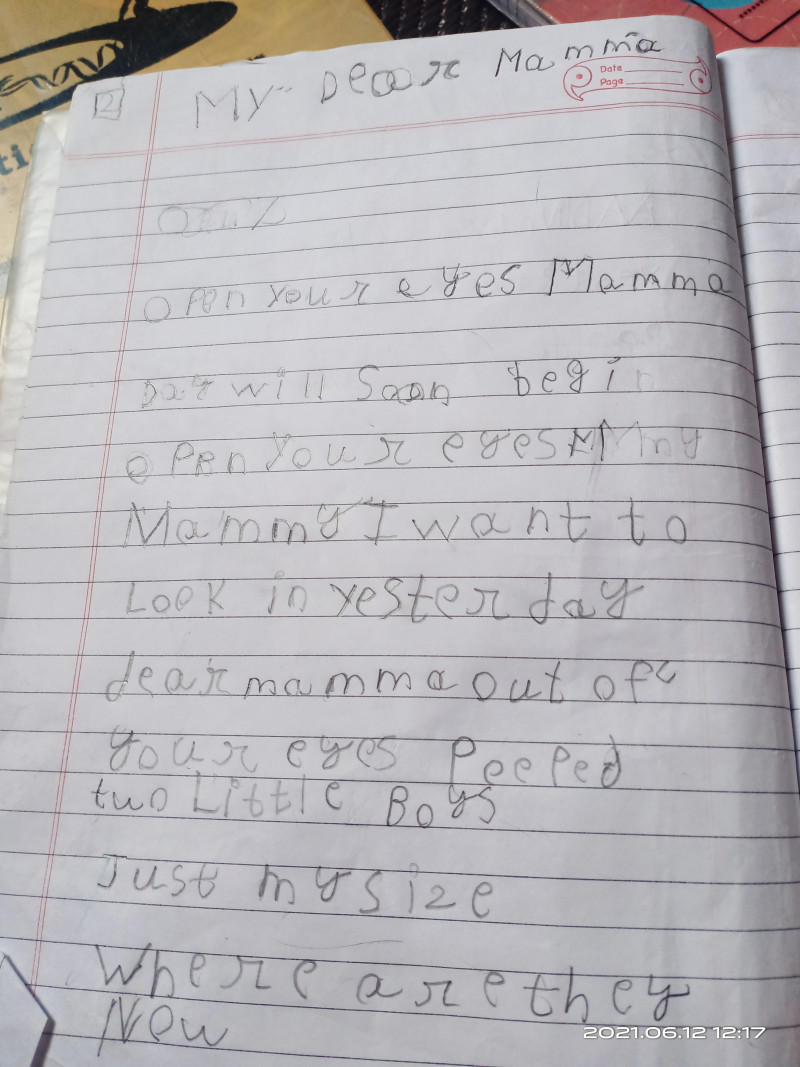 2
My Dear Mamma
Date
Page
open your eyes Mamma
Day will Soon begin
open your eyes My
Mammy I want to
Look in yesterday
dear mamma out of
your eyes Peeped
two Little Boys
Just my size
Where are they
Now
2021.06.12 12:17